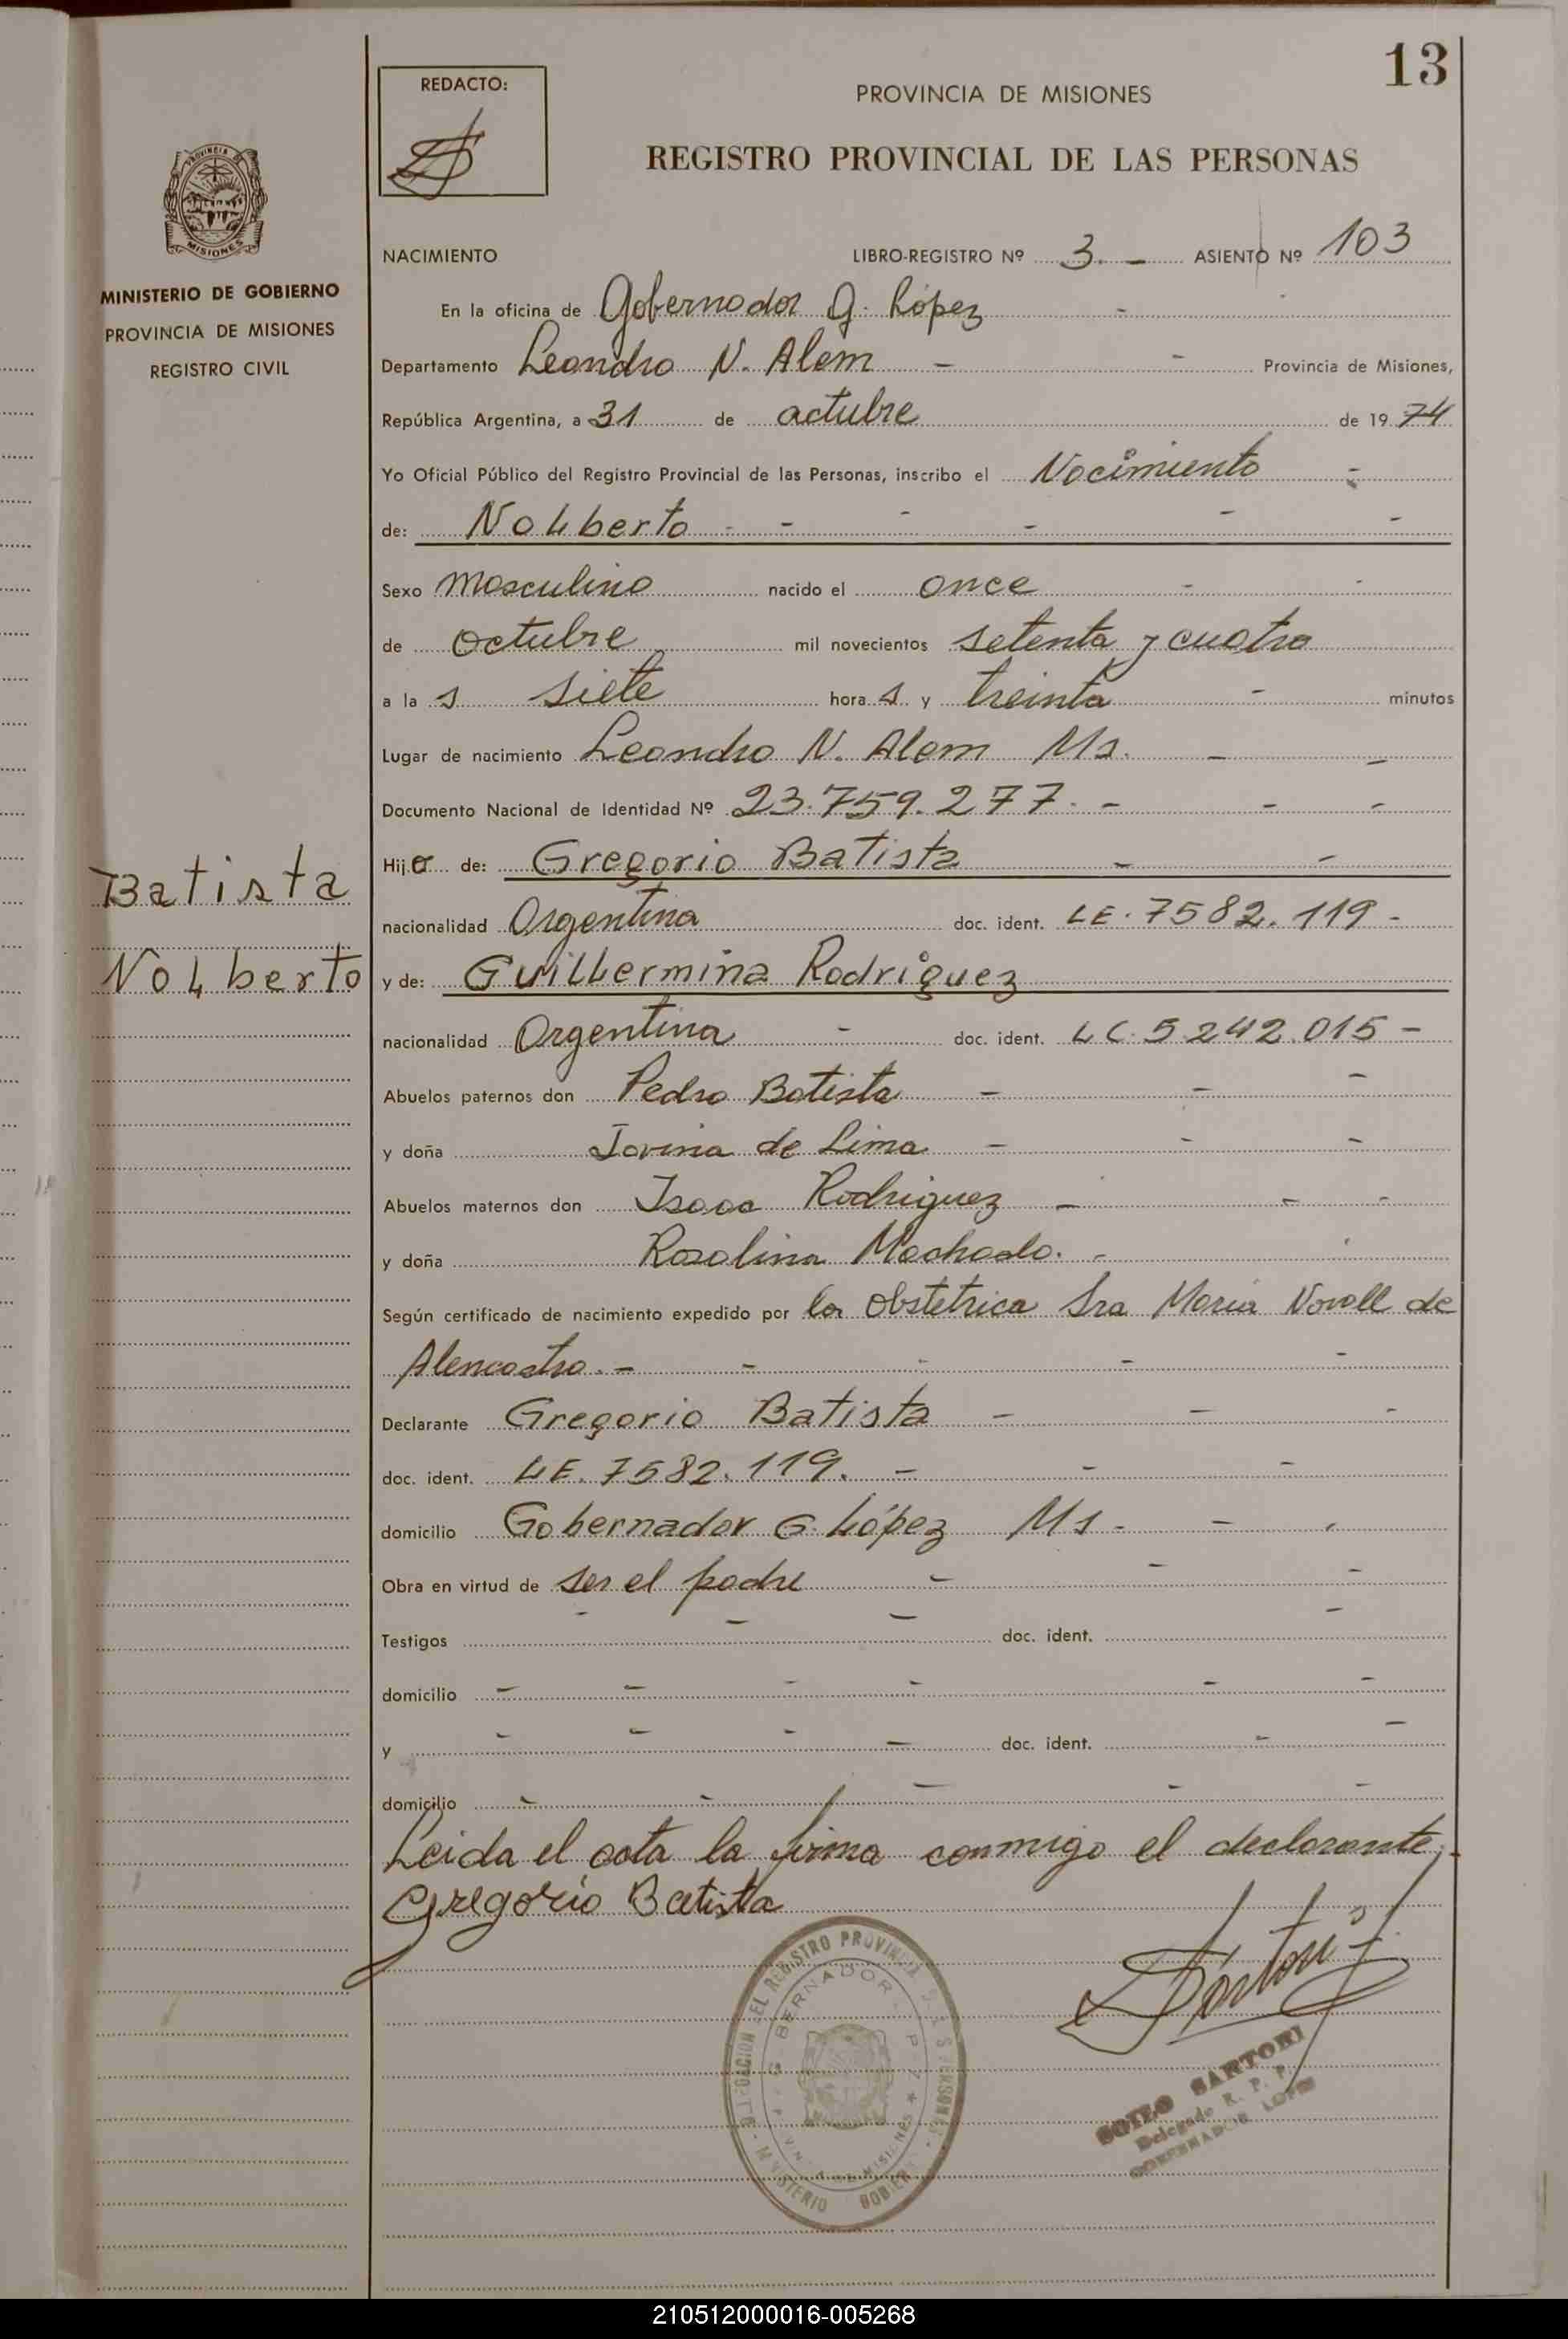 13
REDACTO:
PROVINCIA DE MISIONES
REGISTRO PROVINCIAL DE LAS PERSONAS
PROVINCIA DE
MISIONES
MINISTERIO DE GOBIERNO
PROVINCIA DE MISIONES
REGISTRO CIVIL
NACIMIENTO LIBRO-REGISTRO Nº 3.- ASIENTO Nº 103
En la oficina de Gobernador G. López -
Departamento Leandro N. Alem - - Provincia de Misiones,
República Argentina, a 31 de actubre de 1974
Yo Oficial Público del Registro Provincial de las Personas, inscribo el Nacimiento -
de: Noliberto - - - - - -
Sexo masculino nacido el once - -
de octubre mil novecientos setenta y cuatro
a las siete horas y treinta - minutos
Lugar de nacimiento Leandro N. Alem Ms. - -
Documento Nacional de Identidad Nº 23.759.277.- - -
Hijo de: Gregorio Batista - -
Batista
nacionalidad Argentina doc. ident. LE. 7582.119 -
Noliberto
y de: Guillermina Rodríguez
nacionalidad Argentina - doc. ident. LC. 5.242.015 -
Abuelos paternos don Pedro Batista - - -
y doña Jovina de Lima - - -
Abuelos maternos don Isaac Rodriguez - - -
y doña Rosalina Machado. -
Según certificado de nacimiento expedido por la Obstetrica Sra Maria de
Alencastro. - - - - -
Declarante Gregorio Batista - - -
doc. ident. LE. 7582.119. - - -
domicilio Gobernador G. López Ms - -
Obra en virtud de ser el padre - - -
Testigos - - - doc. ident. -
domicilio - - - - - -
y - - - - doc. ident. - -
domicilio - - - - -
Leida el acta la firma conmigo el declarante.
Gregorio Batista
SARTORI
Delegado R. P. P.
GOBERNADOR LOPEZ
210512000016-005268